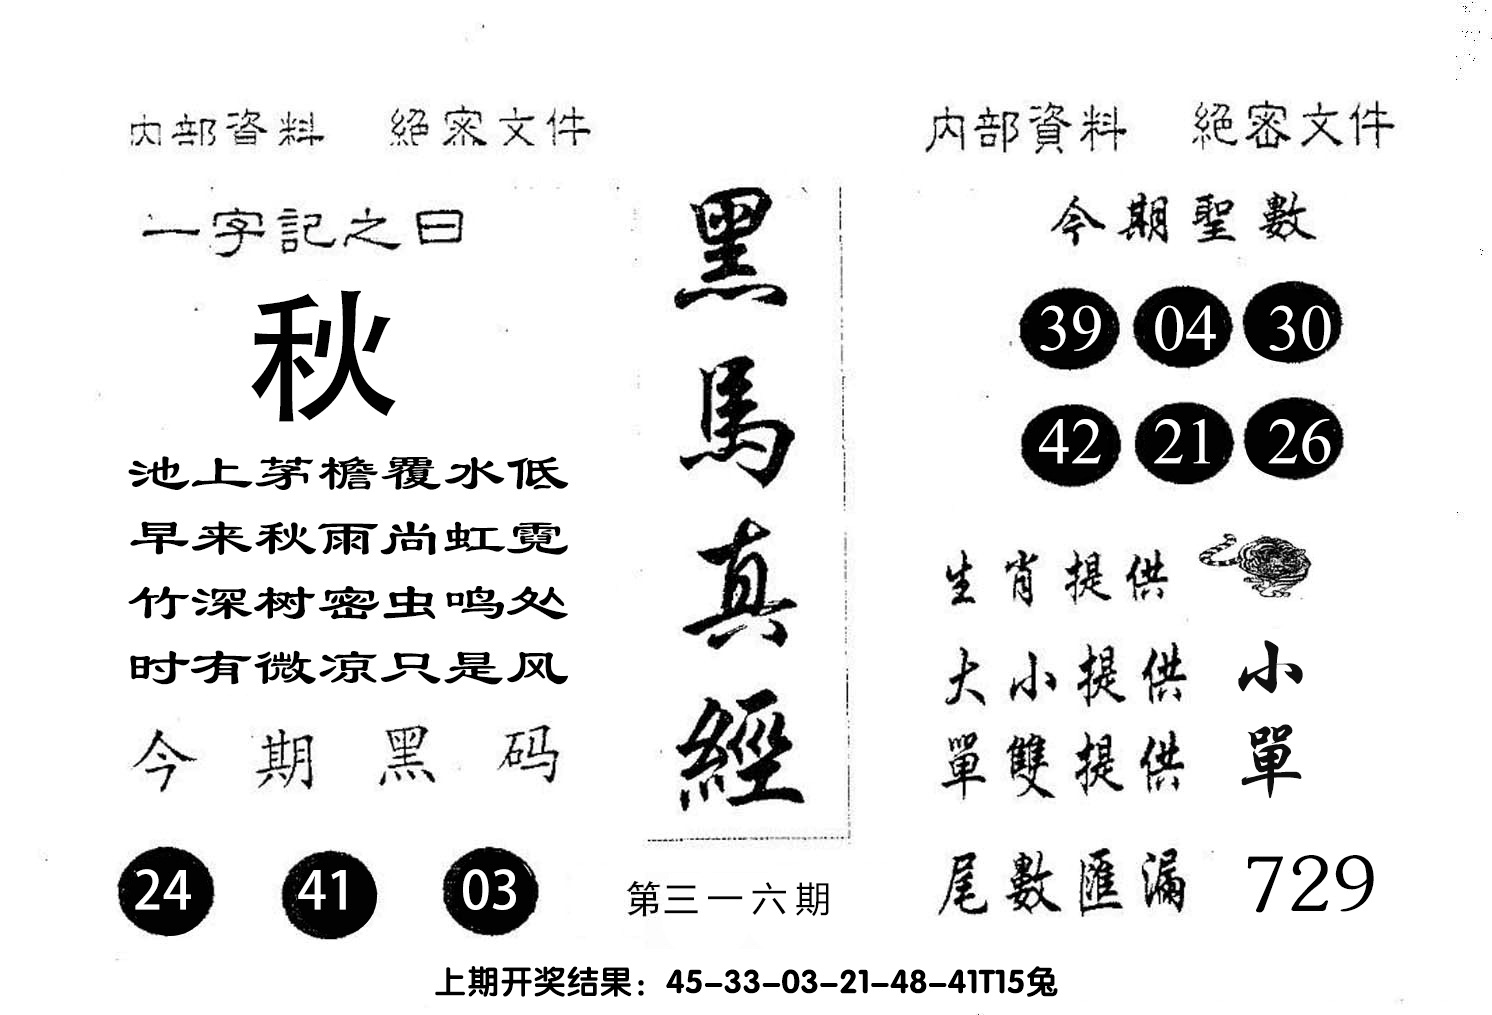 内部資料 絕密文件
一字記之曰
秋
池上茅檐覆水低
早来秋雨尚虹霓
竹深树密虫鸣处
时有微凉只是风
今期黑码
24 41 03
黑馬真經
第三一六期
内部資料 絕密文件
今期聖數
39 04 30
42 21 26
生肖提供
大小提供 小
單雙提供 單
尾數匯漏 729
上期开奖结果：45-33-03-21-48-41T15兔